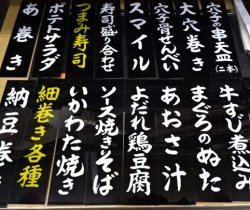 穴子の串天皿(二本)
大穴巻き
穴子骨せんべい
スマイル
寿司盛り合わせ
つまみ寿司
ポテサラダ
あん巻き
牛すじ煮込み
まぐろのぬた
あおさ汁
よだれ鶏豆腐
ソース焼きそば
いかわた焼き
細巻き各種
納豆巻